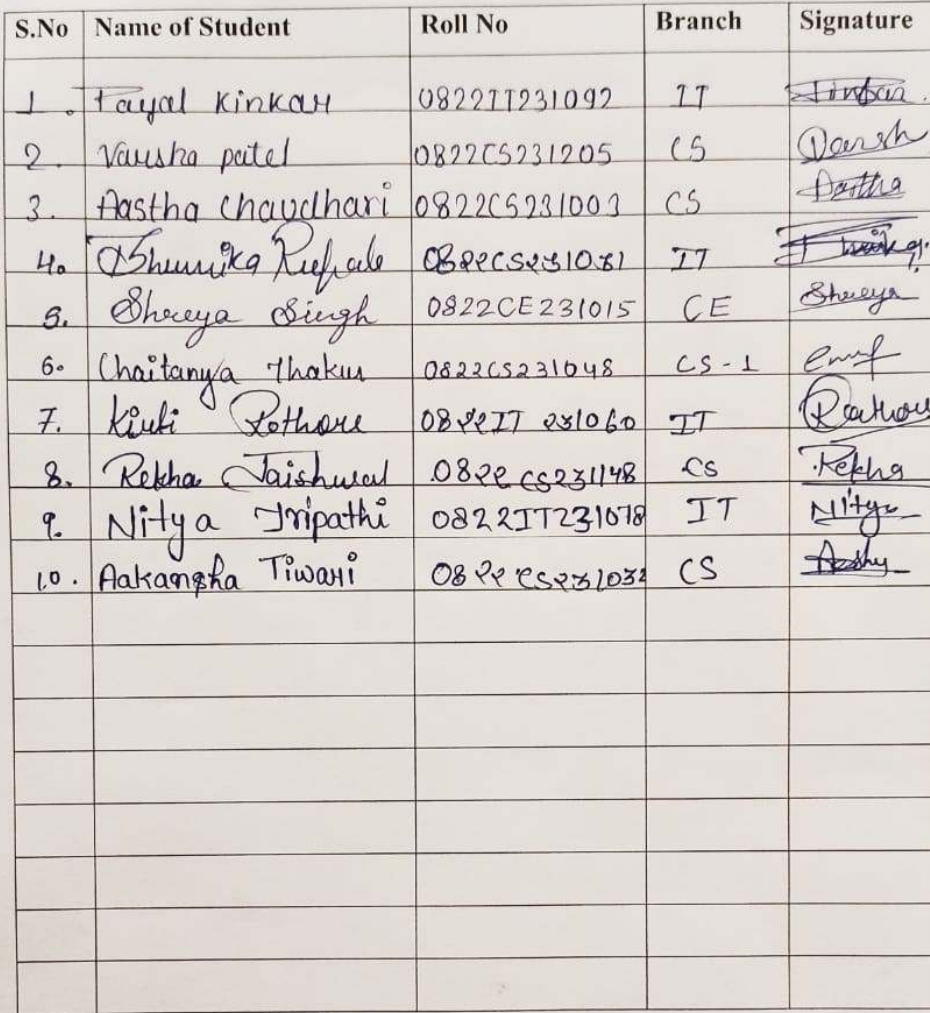 S.No Name of Student Roll No Branch Signature
1. Payal Kinkar 0822IT231092 IT
2. Varsha patel 0822CS231205 CS Varsh
3. Aastha Chaudhari 0822CS231003 CS Aastha
4. Bhumika 0822CS231081 IT
5. Shreya Singh 0822CE231015 CE Shreya
6. Chaitanya Thakur 0822CS231048 CS-1
7. Kirti Rothore 0822IT 231060 IT Rathore
8. Rekha Jaishwal 0822CS231148 CS Rekha
9. Nitya Tripathi 0822IT231078 IT Nitya
10. Aakansha Tiwari 0822CS231032 CS